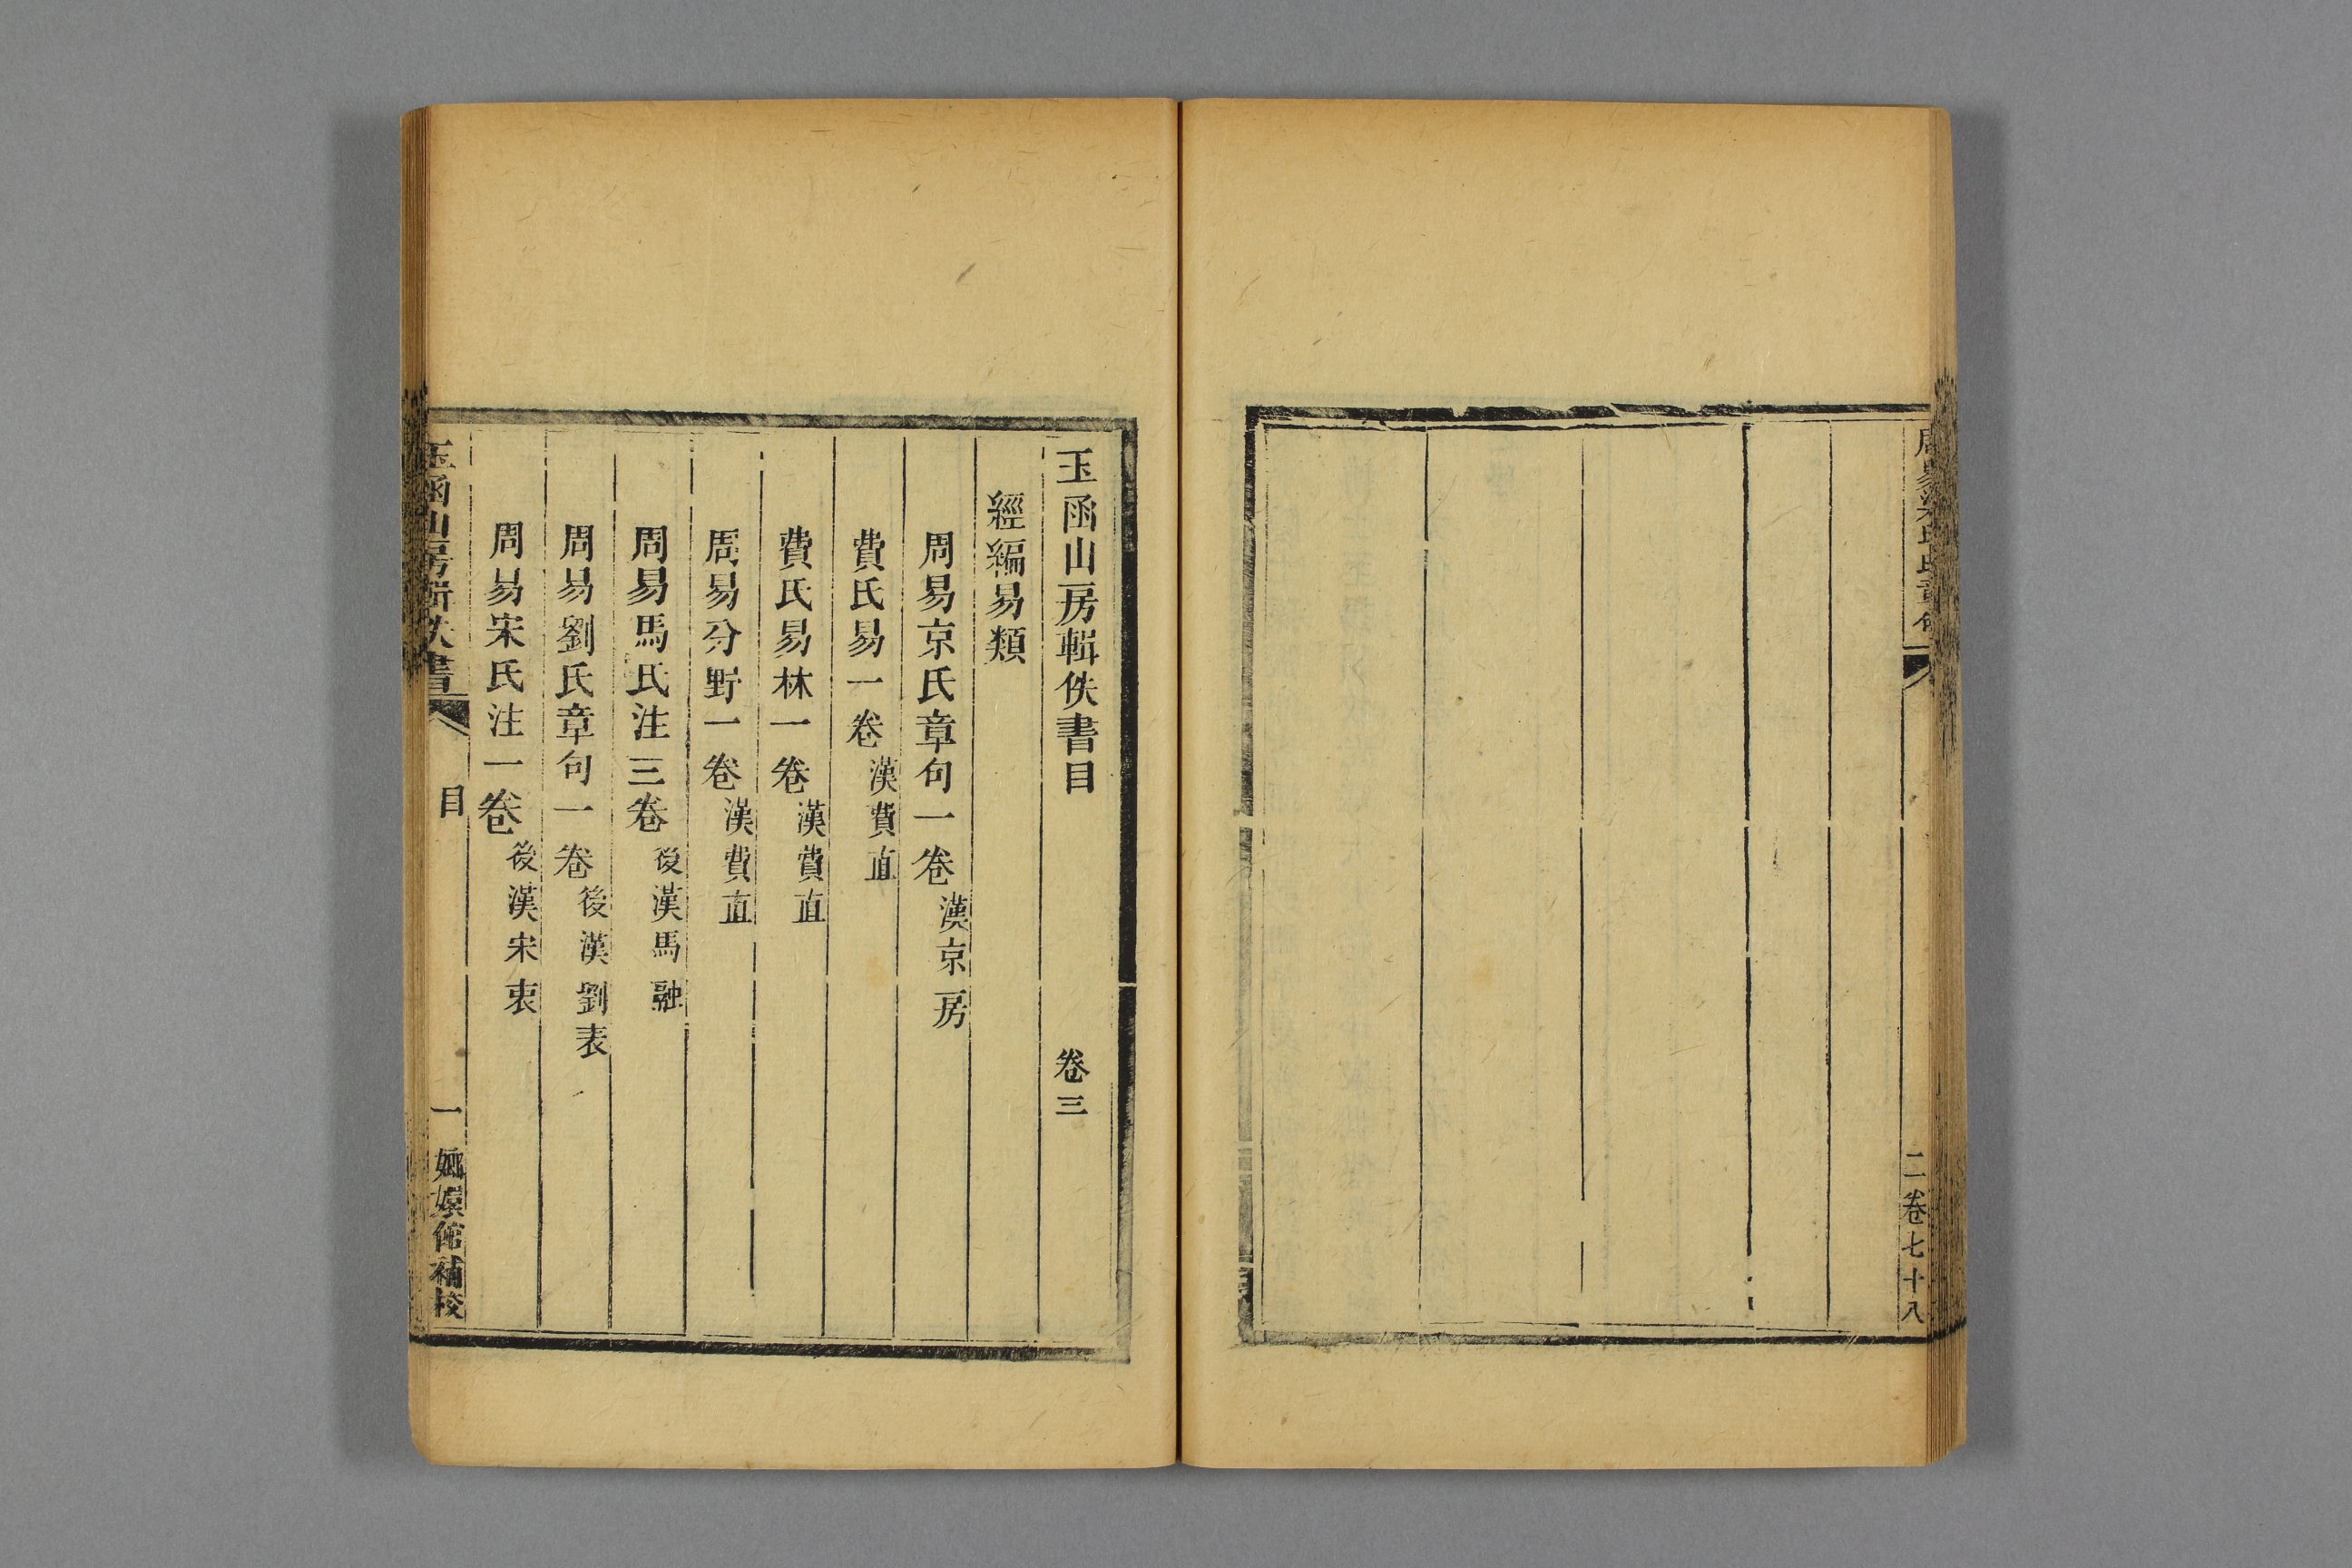 二卷七十八
玉函山房輯佚書目 卷三
經編易類
周易京氏章句一卷 漢京房
費氏易一卷 漢費直
費氏易林一卷 漢費直
周易分野一卷 漢費直
周易馬氏注三卷 後漢馬融
周易劉氏章句一卷 後漢劉表
周易宋氏注一卷 後漢宋衷
玉函山房輯佚書 目 一 嫏嬛館補校